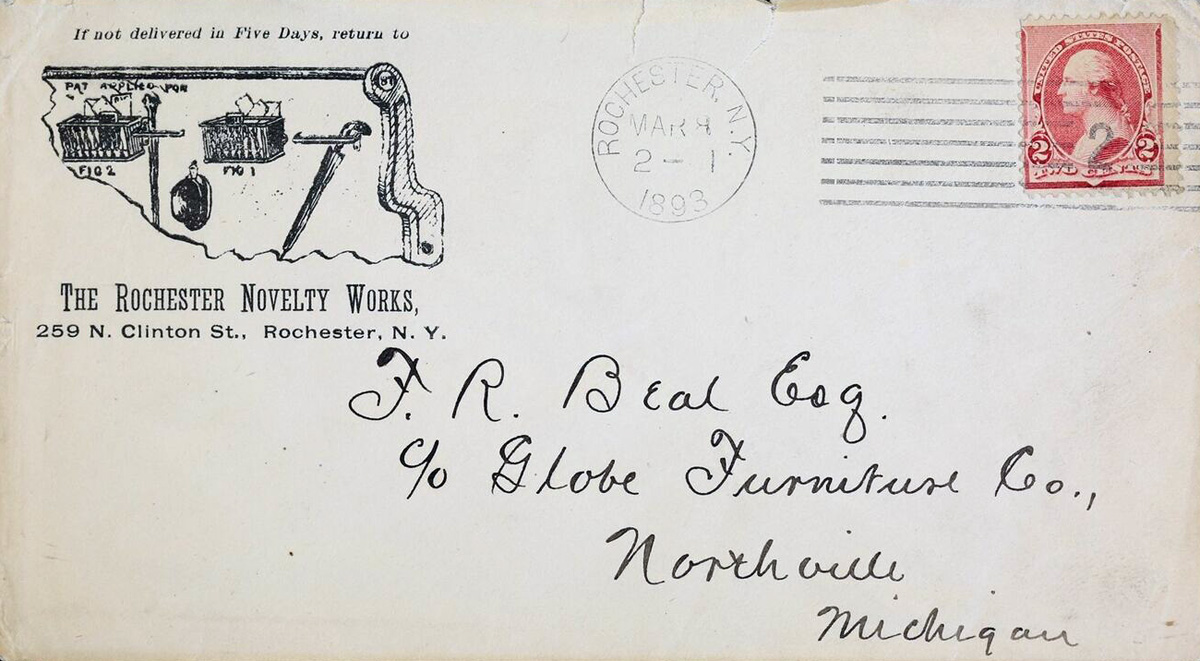 If not delivered in Five Days, return to
PAT APPLIED FOR
FIG 2
FIG 1
THE ROCHESTER NOVELTY WORKS,
259 N. Clinton St., Rochester, N. Y.
ROCHESTER, N.Y.
MAR 8
2 - 1
1893
UNITED STATES POSTAGE
2 2 2
TWO CENTS
F. R. Beal Esq.
c/o Globe Furniture Co.,
Northville
Michigan